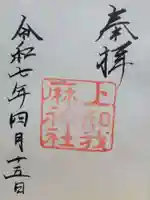 奉拝
上和我
麻神社
令和七年四月十五日